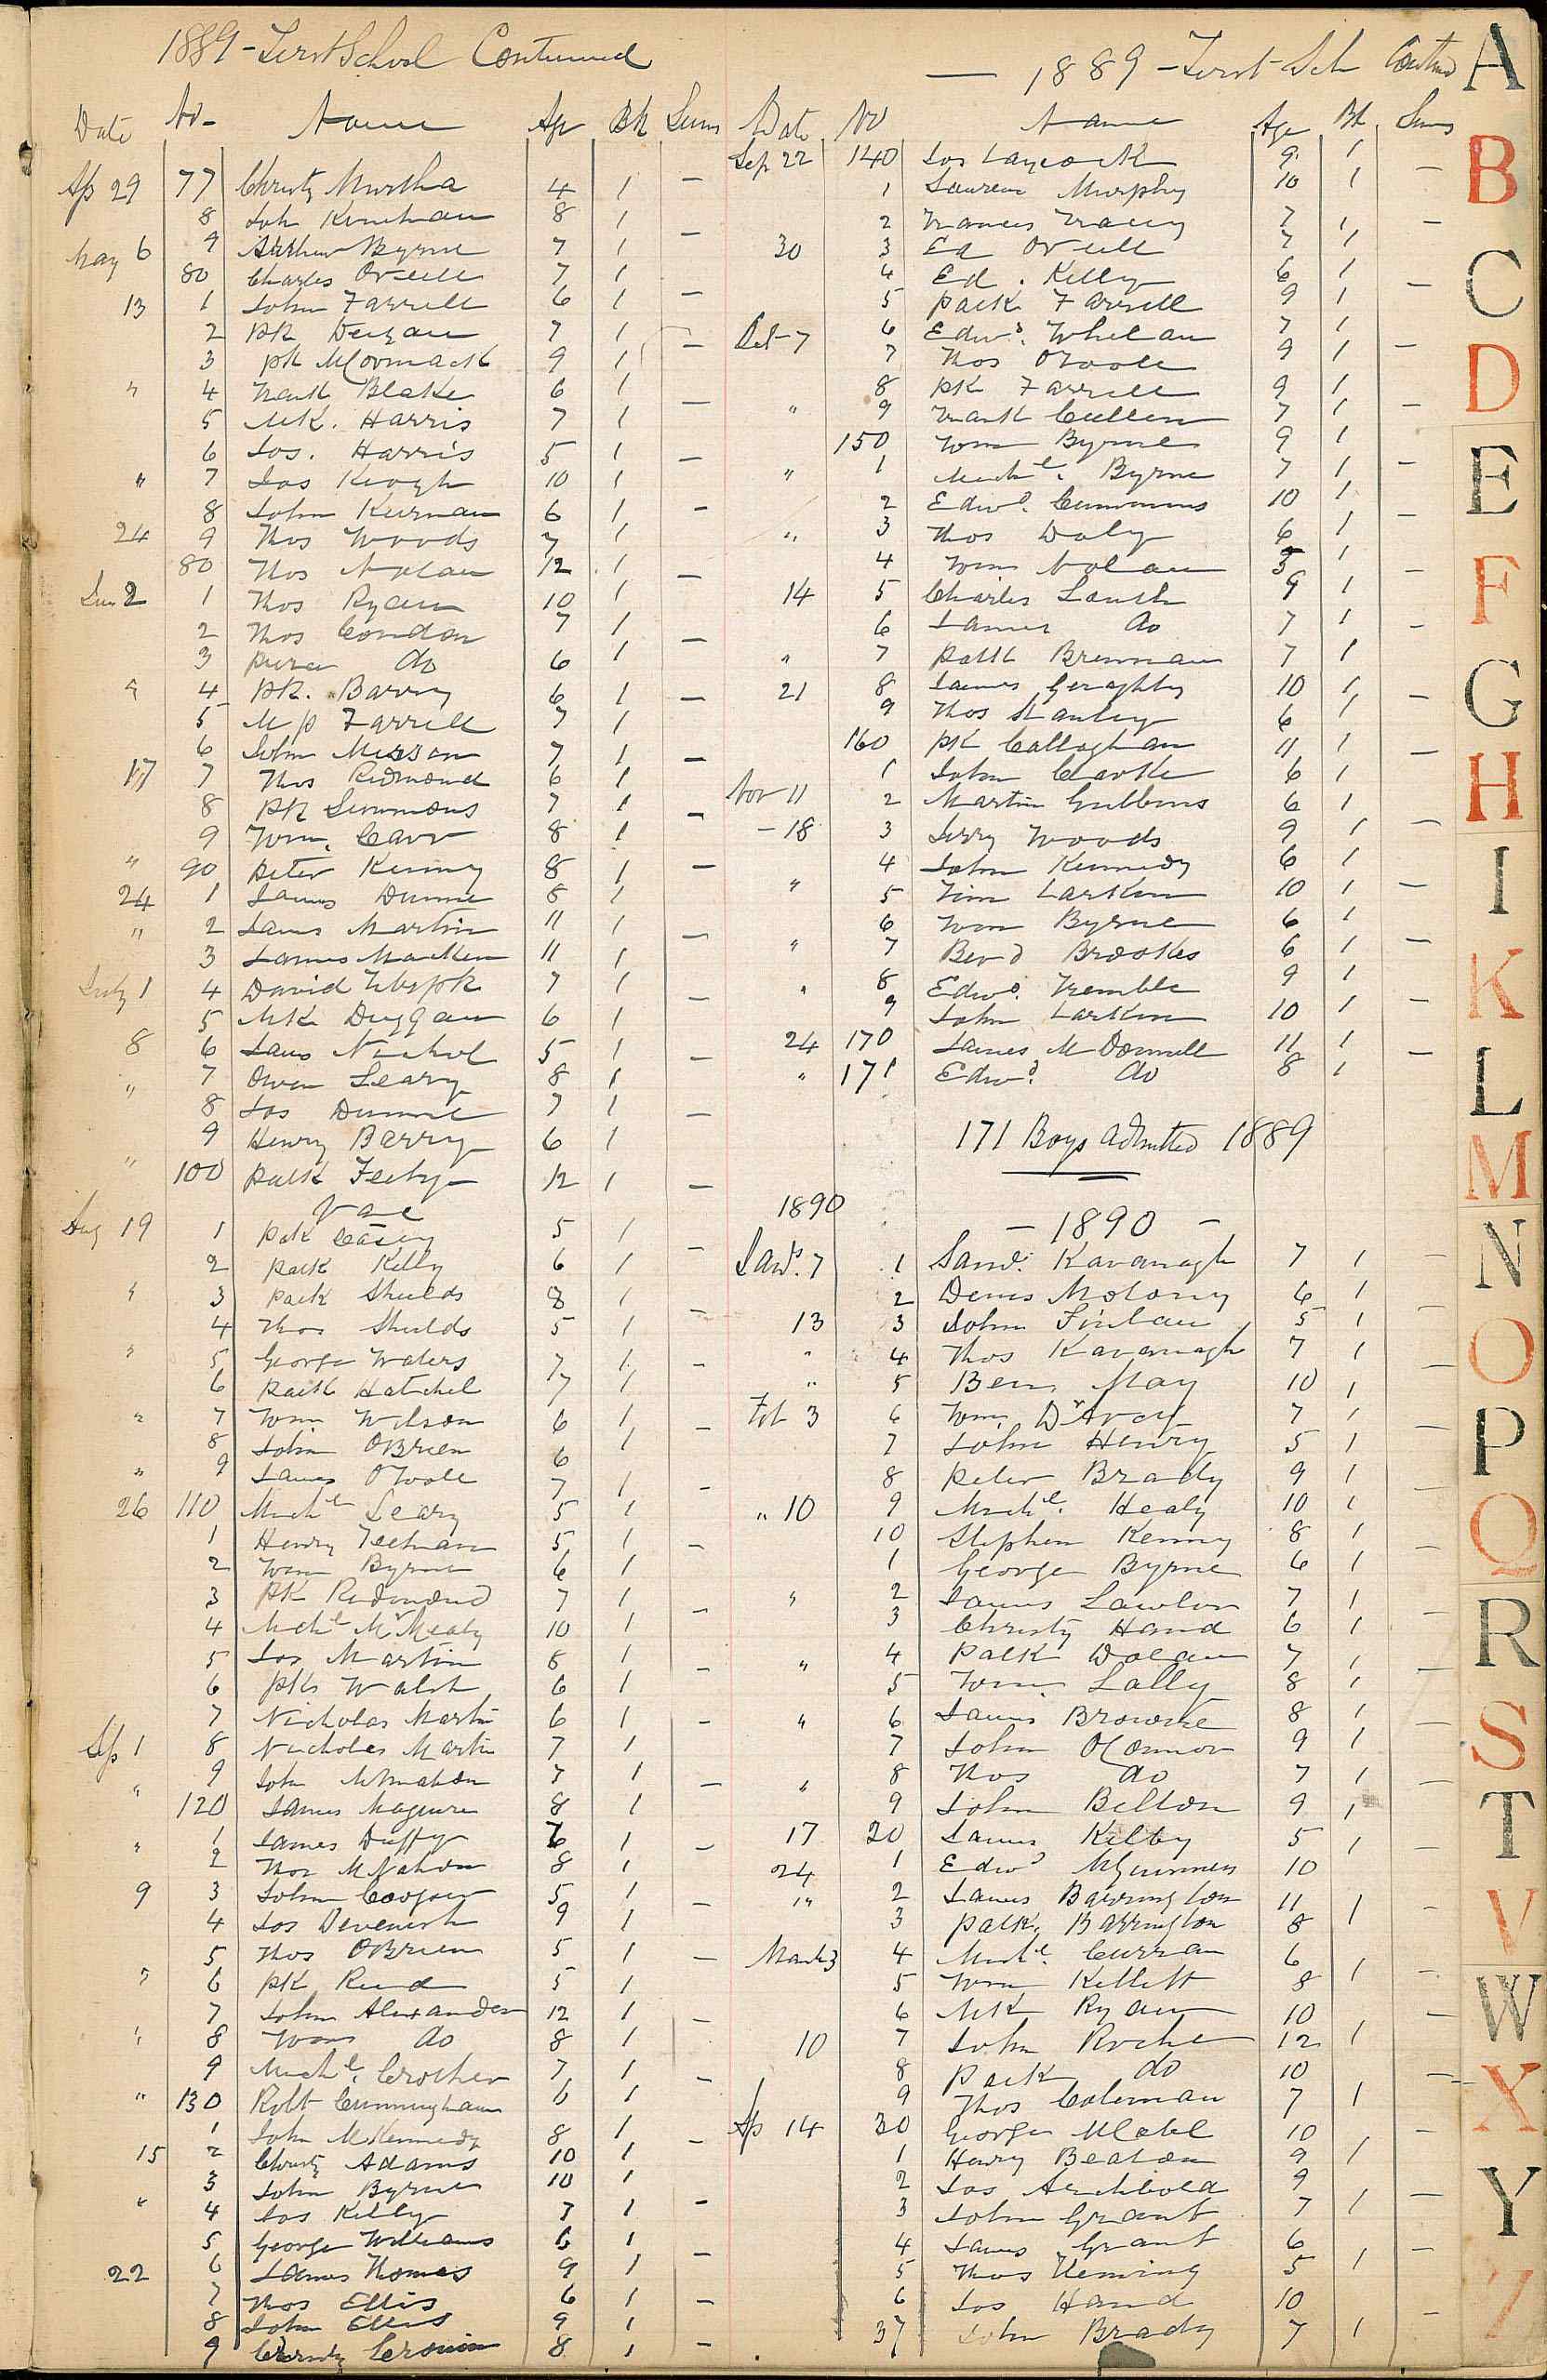 1889 - First School Continued
Date No- Name Age Bk Sums
Ap 29 77 Christy Murtha 4 1 -
8 Joh Kinehan 8 1
May 6 9 Arthur Byrne 7 1 -
80 Charles O'Neill 7 1
13 1 John Farrell 6 1 -
2 Pk Deegan 7 1
3 Pk McCormack 9 1 -
" 4 Frank Blake 6 1
5 Mk. Harris 7 1 -
6 Jos. Harris 5 1
" 7 Jas Keogh 10 1 -
8 John Kiernan 6 1
24 9 Thos Woods 7 1 -
80 Thos Nolan 12 1
Jun 2 1 Thos Ryan 10 1 -
2 Thos Condon 7 1
3 do 6 1 -
" 4 Pk. Barry 6 1
5 M P Farrell 7 1 -
6 John Masson 7 1
17 7 Thos Redmond 6 1 -
8 Pk Simmons 7 1
9 Wm. Carr 8 1 -
" 90 Peter Kenny 8 1
24 1 James Dunne 8 1 -
" 2 James Martin 11 1
3 James Macken 11 1 -
July 1 4 David 7 1
5 Mk Duggan 6 1 -
8 6 Jams Nichol 5 1
" 7 Owen Leary 8 1 -
8 Jos Dunne 7 1
9 Henry Barry 6 1 -
" 100 Patk Feehy 12 1
Vac
Aug 19 1 Patk Casey 5 1 -
2 Patk Kelly 6 1
" 3 Patk Shields 8 1 -
4 Thos Shields 5 1
" 5 George Waters 7 1 -
6 Patk Hatchel 7 1
" 7 Wm Wilson 6 1 -
8 John OBrien 6 1
" 9 James O'Toole 7 1 -
26 110 Michl Leary 5 1
1 Henry Teehan 5 1 -
2 Wm Byrne 6 1
3 Pk Redmond 7 1 -
4 Michl McNealy 10 1
5 Jos Martin 8 1 -
6 Pk Walsh 6 1
7 Nicholas Martin 6 1 -
Sep 1 8 Nicholas Martin 7 1
" 9 John McMahon 7 1 -
120 James Maguire 8 1
" 1 James Duffy 6 1 -
2 Thos McMahon 8 1
9 3 John Cooper 5 1 -
4 Jos Devenish 9 1
5 Thos OBrien 5 1 -
" 6 Pk Reid 5 1
7 John Alexander 12 1 -
" 8 Wm do 8 1
9 Michl. Crother 7 1 -
" 130 Robt Cunningham 6 1
1 John McKennedy 8 1 -
15 2 Christy Adams 10 1
3 John Byrne 10 1 -
" 4 Jos Kelly 7 1
5 George Williams 6 1 -
22 6 James Thomas 9 1
7 Thos Ellis 6 1 -
8 John Ellis 9 1
9 Christy Cronin 8 1 -
— 1889 - First Sch Contind
Date No Name Age Bk Sums
Sep 22 140 Jos Laycock 9 1 -
1 Laurence Murphy 10 1
2 Francis Tracey 7 1 -
30 3 Ed O'Neill 7 1
4 Ed. Kelly 6 1 -
5 Patk Farrell 9 1
Oct 7 6 Edwd. Whelan 7 1 -
7 Thos OToole 9 1
8 Pk Farrell 9 1 -
" 9 Frank Cullen 7 1
150 Wm Byrne 9 1 -
" 1 Michl. Byrne 7 1
2 Edwd. Cummins 10 1 -
" 3 Thos Daly 6 1
4 Wm Nolan 5 1 -
14 5 Charles South 9 1
6 James do 7 1 -
" 7 Patk Brennan 7 1
21 8 James Geraghty 10 1 -
9 Thos Stanley 6 1
160 Pk Callaghan 11 1 -
1 John Clarke 6 1
Nov 11 2 Martin Gubbins 6 1 -
- 18 3 Jerry Woods 9 1
4 John Kennedy 6 1 -
" 5 Tim Larkin 10 1
6 Wm Byrne 6 1 -
" 7 Bernd Brookes 6 1
" 8 Edwd. Tremble 9 1 -
9 John Larkin 10 1
24 170 James McDonnell 11 1 -
" 171 Edwd. do 8 1
171 Boys admitted 1889
1890
- 1890 -
Jany. 7 1 Saml. Kavanagh 7 1 -
2 Denis Molony 6 1
13 3 John Finlan 5 1 -
" 4 Thos Kavanagh 7 1
" 5 Ben May 10 1 -
Feb 3 6 Wm. D'Arcy 7 1
7 John Henry 5 1 -
8 Peter Brady 9 1
" 10 9 Michl. Healy 10 1 -
10 Stephen Kenny 8 1
1 George Byrne 6 1 -
" 2 James Lawlor 7 1
3 Christy Hand 6 1 -
" 4 Patk Dolan 7 1
5 Wm. Lally 8 1 -
" 6 James Browne 8 1
7 John OConnor 9 1 -
" 8 Thos do 7 1
9 John Belton 9 1 -
17 20 James Kelby 5 1
24 1 Edwd McGuinness 10 -
" 2 James Barrington 11 1
3 Patk. Barrington 8 -
March 3 4 Michl. Curran 6 1
5 Wm Kellett 8 -
6 Mk Ryan 10
10 7 John Roche 12 1 -
8 Patk do 10
9 Thos Coleman 7 1 -
Ap 14 30 George McCabe 10
1 Henry Beaton 9 1 -
2 Jos Archbold 9
3 John Grant 7 1 -
4 James Grant 6
5 Thos Fleming 5 1 -
6 Jos Hand 10
37 John Brady 7 1 -
A
B
C
D
E
F
G
H
I
K
L
M
N
O
P
Q
R
S
T
V
W
X
Y
Z